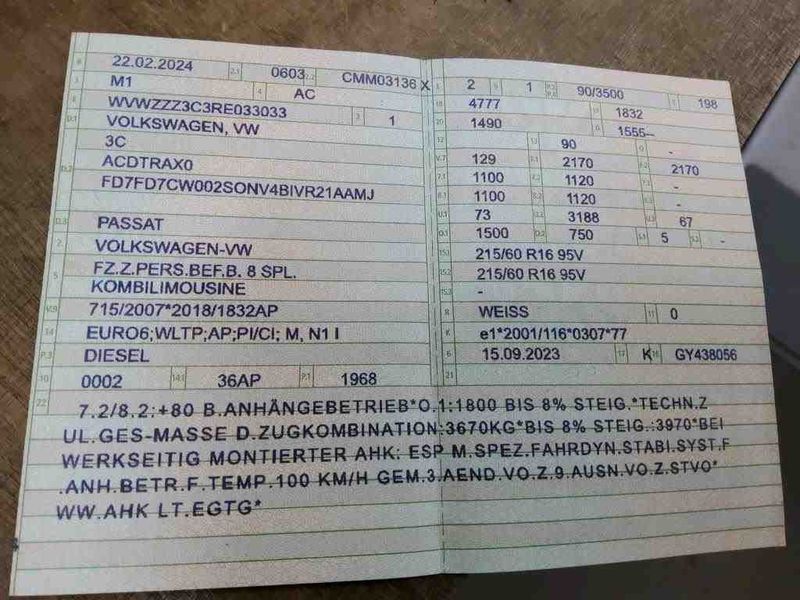 B 22.02.2024 2.1 0603 2.2 CMM03136 X
J M1 4 AC
E WVWZZZ3C3RE033033 3 1
D.1 VOLKSWAGEN, VW
3C
D.2 ACDTRAX0
FD7FD7CW002SONV4BIVR21AAMJ
D.3 PASSAT
2 VOLKSWAGEN-VW
5 FZ.Z.PERS.BEF.B. 8 SPL.
KOMBILIMOUSINE
V.9 715/2007*2018/1832AP
14 EURO6;WLTP;AP;PI/CI; M, N1 I
P.3 DIESEL
10 0002 14.1 36AP P.1 1968
L 2 9 1 P.2 P.4 90/3500 T 198
18 4777 19 1832
20 1490 G 1555--
12 - 13 90 Q -
V.7 129 F.1 2170 F.2 2170
7.1 1100 7.2 1120 7.3 -
8.1 1100 8.2 1120 8.3 -
U.1 73 U.2 3188 U.3 67
O.1 1500 O.2 750 S.1 5 S.2 -
15.1 215/60 R16 95V
15.2 215/60 R16 95V
15.3 -
R WEISS 11 0
K e1*2001/116*0307*77
6 15.09.2023 17 K 16 GY438056
21
22 7.2/8.2:+80 B.ANHÄNGEBETRIEB*O.1:1800 BIS 8% STEIG.*TECHN.Z
UL.GES-MASSE D.ZUGKOMBINATION:3670KG*BIS 8% STEIG.:3970*BEI
WERKSEITIG MONTIERTER AHK: ESP M.SPEZ.FAHRDYN.STABI.SYST.F
.ANH.BETR.F.TEMP.100 KM/H GEM.3.AEND.VO.Z.9.AUSN.VO.Z.STVO*
WW.AHK LT.EGTG*